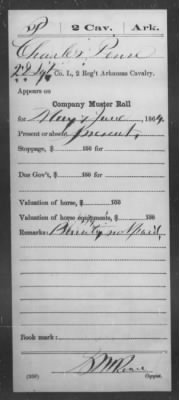 P 2 Cav. Ark.
Charles Penn
2d Sgt, Co. L, 2 Reg't Arkansas Cavalry.
Appears on
Company Muster Roll
for May & June, 1864.
Present or absent Present,
Stoppage, $ 100 for
Due Gov't, $ 100 for
Valuation of horse, $ 100
Valuation of horse equipments, $ 100
Remarks: Bounty not paid,
Book mark:
(358)
Copyist.